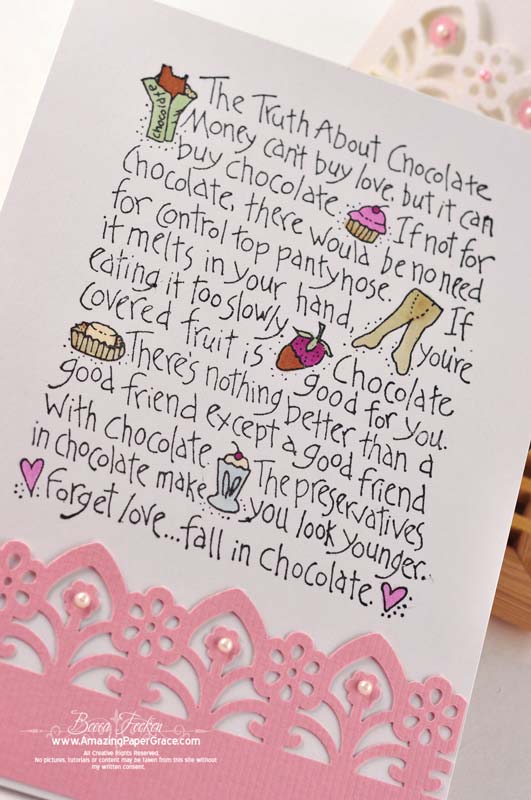 Chocolate
The Truth About Chocolate
Money can't buy love, but it can
buy chocolate. If not for
Chocolate, there would be no need
for control top pantyhose. If
it melts in your hand, you're
eating it too slowly. Chocolate
covered fruit is good for you.
There's nothing better than a
good friend except a good friend
with chocolate. The preservatives
in chocolate make you look younger.
Forget love...fall in chocolate.
Becca Feeken
www.AmazingPaperGrace.com
All Creative Rights Reserved.
No pictures, tutorials or content may be taken from this site without
my written consent.